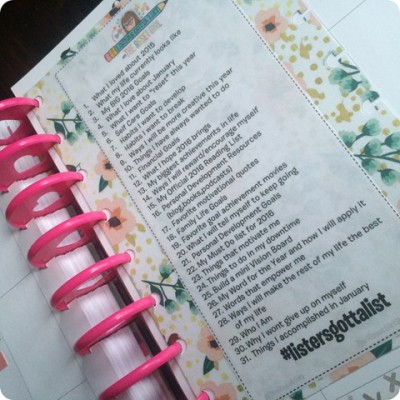 1. What I loved about 2015
2. What my life currently looks like
3. My BIG 2016 Goals
4. What I love about January
5. What I want to "reset" this year
6. Self Care Goals
7. Habits I want to develop
8. Habits I want to break
9. Ways I will be more creative this year
10. Things I have always wanted to do
11. Financial Goals
12. What I hope 2016 brings
13. My biggest achievements in life
14. Ways I will reward/encourage myself
15. My Official 2016 Reading List
16. Personal Development Resources
(Blog,books,podcasts)
17. Favorite motivational quotes
18. Family Life Goals
19. Favorite goal achievement movies
20. What I will tell myself to keep going
21. Personal Development Goals
22. My Must Do list for 2016
23. Things that motivate me
24. Things to do in my downtime
25. Build a mini Vision Board
26. My Word for the Year and how I will apply it
27. Words that empower me
28. Ways I will make the rest of my life the best
of my life
29. Who I Am
30. Why I wont give up on myself
31. Things I accomplished in January
#listersgottalist